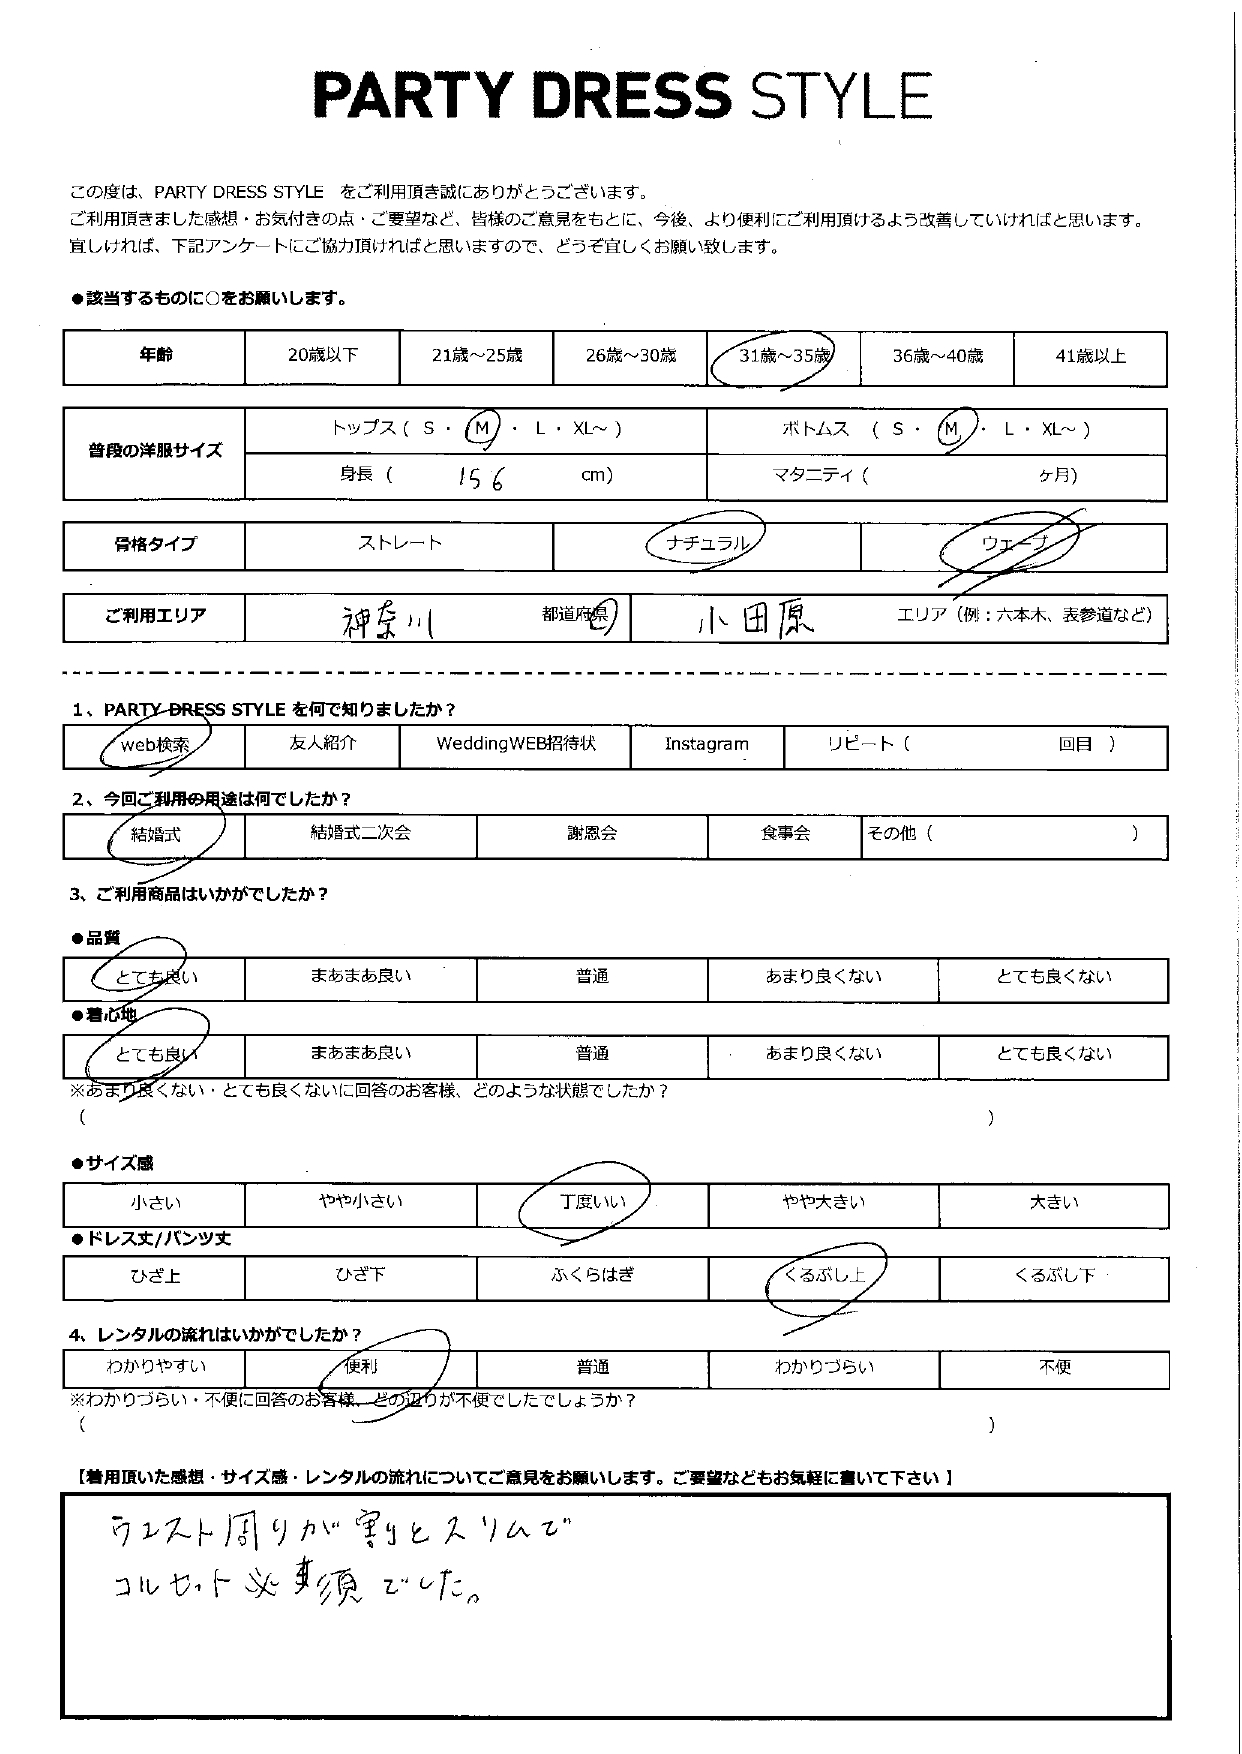 PARTY DRESS STYLE
この度は、PARTY DRESS STYLE をご利用頂き誠にありがとうございます。
ご利用頂きました感想・お気付きの点・ご要望など、皆様のご意見をもとに、今後、より便利にご利用頂けるよう改善していければと思います。
宜しければ、下記アンケートにご協力頂ければと思いますので、どうぞ宜しくお願い致します。
●該当するものに○をお願いします。
年齢 20歳以下 21歳～25歳 26歳～30歳 31歳～35歳 36歳～40歳 41歳以上
普段の洋服サイズ トップス ( S ・ M ・ L ・ XL～ ) ボトムス ( S ・ M ・ L ・ XL～ )
身長 ( 156 cm) マタニティ ( ヶ月)
骨格タイプ ストレート ナチュラル ウェーブ
ご利用エリア 神奈川 都道府県 小田原 エリア（例：六本木、表参道など）
1、PARTY DRESS STYLE を何で知りましたか？
web検索 友人紹介 WeddingWEB招待状 Instagram リピート ( 回目 )
2、今回ご利用の用途は何でしたか？
結婚式 結婚式二次会 謝恩会 食事会 その他 ( )
3、ご利用商品はいかがでしたか？
●品質
とても良い まあまあ良い 普通 あまり良くない とても良くない
●着心地
とても良い まあまあ良い 普通 あまり良くない とても良くない
※あまり良くない・とても良くないに回答のお客様、どのような状態でしたか？
( )
●サイズ感
小さい やや小さい 丁度いい やや大きい 大きい
●ドレス丈/パンツ丈
ひざ上 ひざ下 ふくらはぎ くるぶし上 くるぶし下
4、レンタルの流れはいかがでしたか？
わかりやすい 便利 普通 わかりづらい 不便
※わかりづらい・不便に回答のお客様、どの辺りが不便でしたでしょうか？
( )
【着用頂いた感想・サイズ感・レンタルの流れについてご意見をお願いします。ご要望などもお気軽に書いて下さい 】
ウエスト周りが割とスリムで
コルセット必須でした。